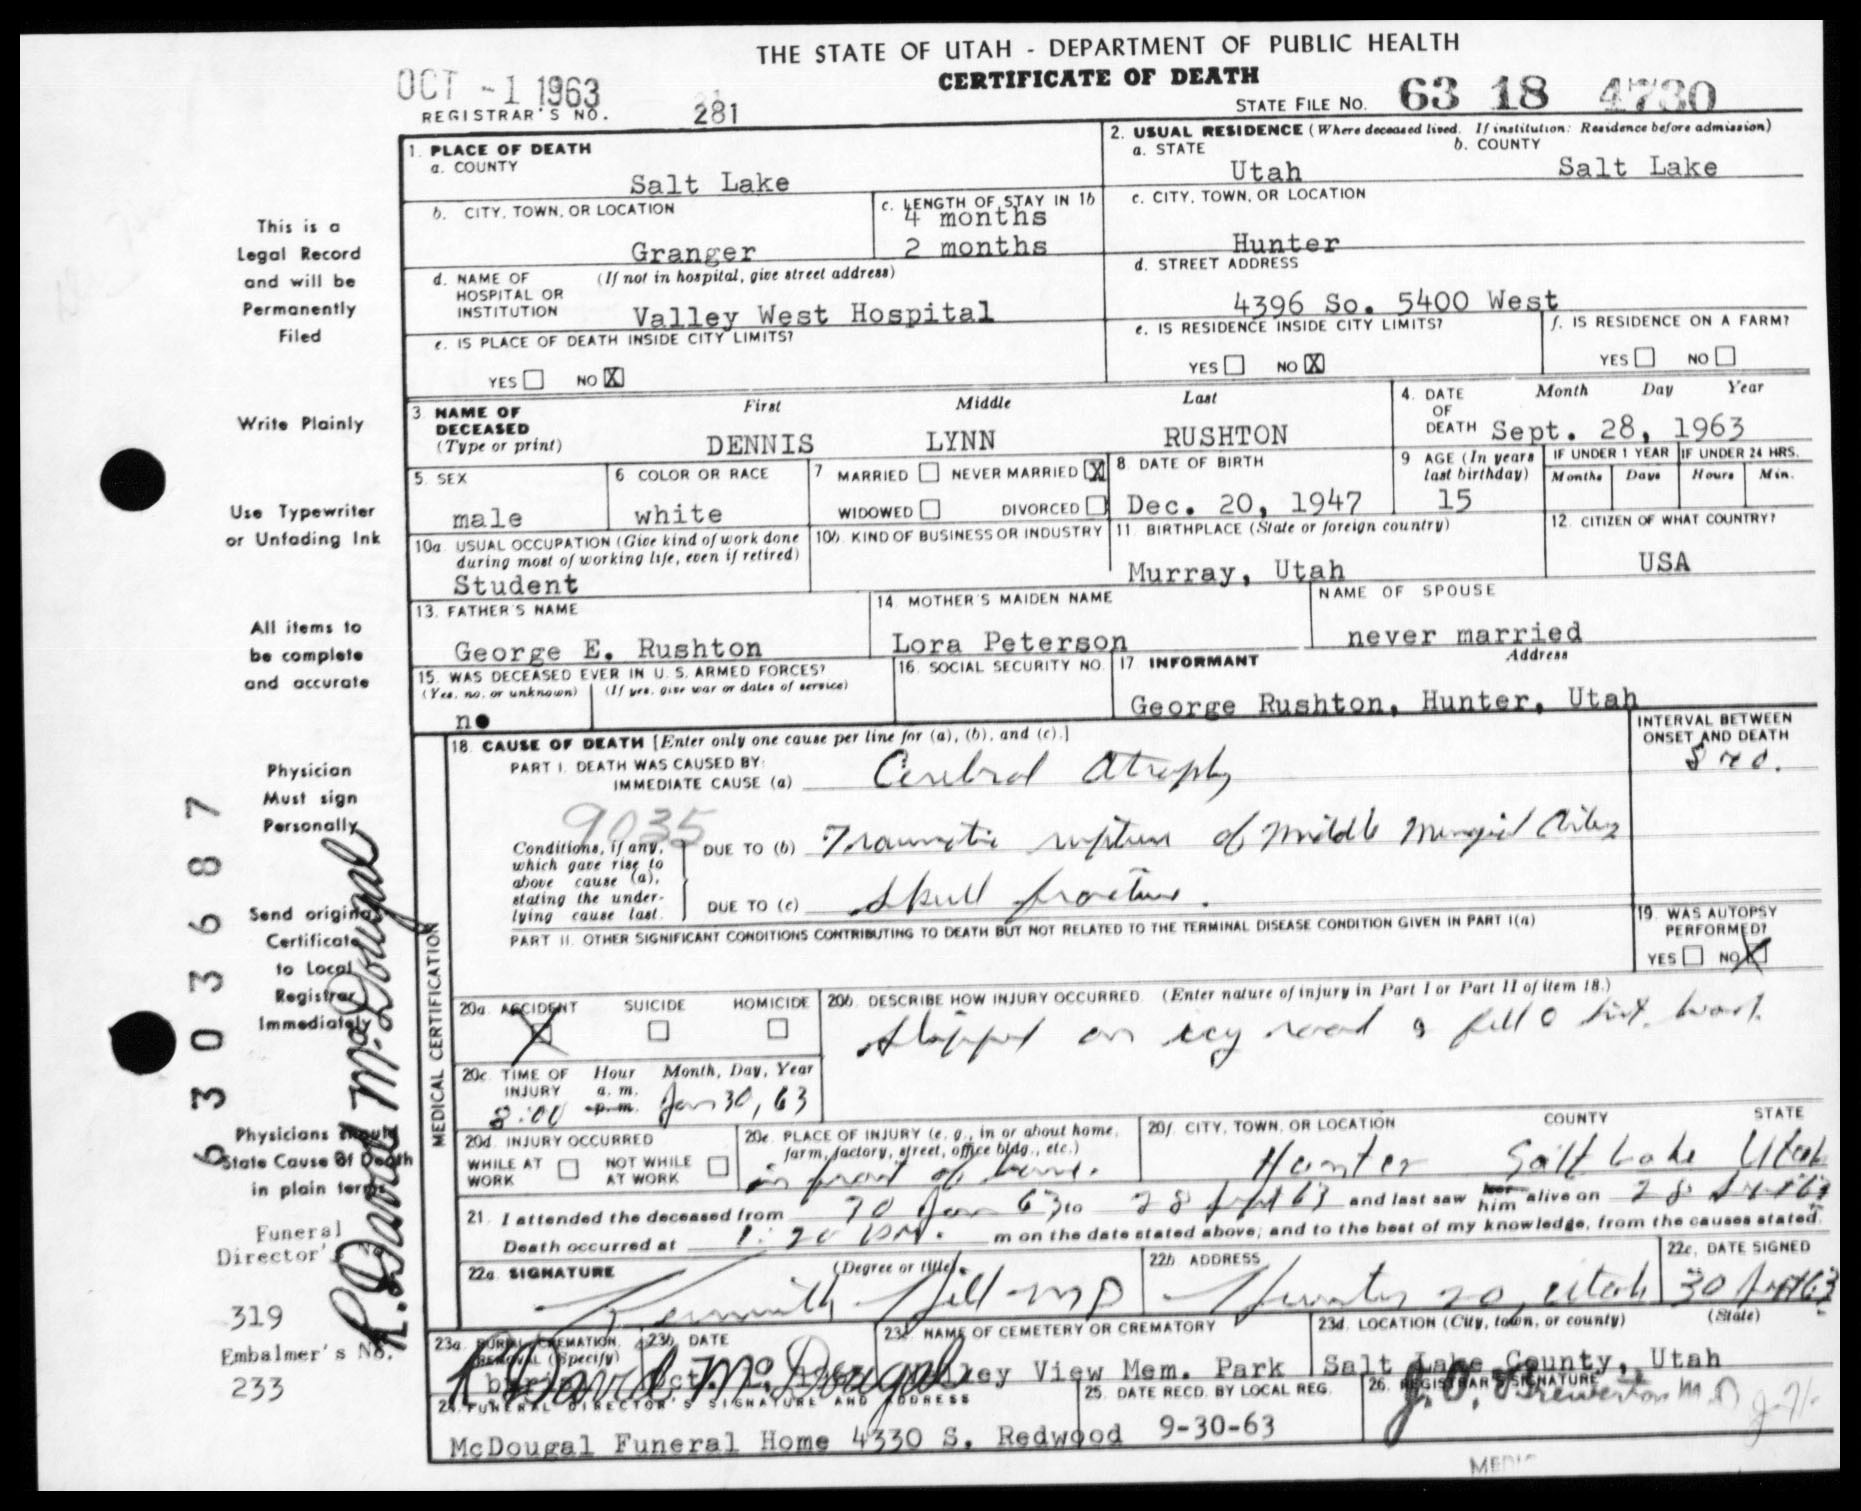 THE STATE OF UTAH - DEPARTMENT OF PUBLIC HEALTH
CERTIFICATE OF DEATH
OCT -1 1963
REGISTRAR'S NO. 281
STATE FILE NO. 63 18 4730
This is a
Legal Record
and will be
Permanently
Filed
Write Plainly
Use Typewriter
or Unfading Ink
All items to
be complete
and accurate
Physician
Must sign
Personally
Send original
Certificate
to Local
Registrar
Immediately
Physicians should
State Cause Of Death
in plain terms
Funeral
Director's No.
319
Embalmer's No.
233
6303687
R. David McDougal
1. PLACE OF DEATH
a. COUNTY
Salt Lake
b. CITY, TOWN, OR LOCATION
Granger
c. LENGTH OF STAY IN 1b
4 months
2 months
d. NAME OF HOSPITAL OR INSTITUTION (If not in hospital, give street address)
Valley West Hospital
e. IS PLACE OF DEATH INSIDE CITY LIMITS?
YES NO X
2. USUAL RESIDENCE (Where deceased lived. If institution: Residence before admission)
a. STATE
Utah
b. COUNTY
Salt Lake
c. CITY, TOWN, OR LOCATION
Hunter
d. STREET ADDRESS
4396 So. 5400 West
e. IS RESIDENCE INSIDE CITY LIMITS?
YES NO X
f. IS RESIDENCE ON A FARM?
YES NO
3. NAME OF DECEASED (Type or print)
First Middle Last
DENNIS LYNN RUSHTON
4. DATE OF DEATH Month Day Year
Sept. 28, 1963
5. SEX
male
6. COLOR OR RACE
white
7. MARRIED NEVER MARRIED X
WIDOWED DIVORCED
8. DATE OF BIRTH
Dec. 20, 1947
9. AGE (In years last birthday)
15
IF UNDER 1 YEAR
Months Days
IF UNDER 24 HRS.
Hours Min.
10a. USUAL OCCUPATION (Give kind of work done during most of working life, even if retired)
Student
10b. KIND OF BUSINESS OR INDUSTRY
11. BIRTHPLACE (State or foreign country)
Murray, Utah
12. CITIZEN OF WHAT COUNTRY?
USA
13. FATHER'S NAME
George E. Rushton
14. MOTHER'S MAIDEN NAME
Lora Peterson
NAME OF SPOUSE
never married
15. WAS DECEASED EVER IN U. S. ARMED FORCES?
(Yes, no, or unknown) (If yes, give war or dates of service)
no
16. SOCIAL SECURITY NO.
17. INFORMANT Address
George Rushton, Hunter, Utah
MEDICAL CERTIFICATION
18. CAUSE OF DEATH [Enter only one cause per line for (a), (b), and (c).]
INTERVAL BETWEEN ONSET AND DEATH
PART I. DEATH WAS CAUSED BY:
IMMEDIATE CAUSE (a) Cerebral Atrophy
9035
Conditions, if any, which gave rise to above cause (a), stating the underlying cause last.
DUE TO (b) Traumatic rupture of Middle Meningeal Artery
DUE TO (c) Skull fracture.
PART II. OTHER SIGNIFICANT CONDITIONS CONTRIBUTING TO DEATH BUT NOT RELATED TO THE TERMINAL DISEASE CONDITION GIVEN IN PART I(a)
19. WAS AUTOPSY PERFORMED?
YES NO X
20a. ACCIDENT SUICIDE HOMICIDE
X
20b. DESCRIBE HOW INJURY OCCURRED. (Enter nature of injury in Part I or Part II of item 18.)
slipped on icy road & fell
20c. TIME OF INJURY Hour Month, Day, Year
a. m.
p. m.
8:00 Jan 30, 63
20d. INJURY OCCURRED
WHILE AT WORK NOT WHILE AT WORK
20e. PLACE OF INJURY (e. g., in or about home, farm, factory, street, office bldg., etc.)
in front of home.
20f. CITY, TOWN, OR LOCATION COUNTY STATE
Hunter Salt Lake Utah
21. I attended the deceased from Jan 63 to 28 Sept 63 and last saw her him alive on 28 Sept 63
Death occurred at 1:20 PM. m on the date stated above; and to the best of my knowledge, from the causes stated.
22a. SIGNATURE (Degree or title)
Kenneth Hill MD
22b. ADDRESS
Utah
22c. DATE SIGNED
30 Sept 63
23a. BURIAL, CREMATION, REMOVAL (Specify)
23b. DATE
Oct.
23c. NAME OF CEMETERY OR CREMATORY
Valley View Mem. Park
23d. LOCATION (City, town, or county) (State)
Salt Lake County, Utah
R. David McDougal
24. FUNERAL DIRECTOR'S SIGNATURE AND ADDRESS
McDougal Funeral Home 4330 S. Redwood
25. DATE RECD. BY LOCAL REG.
9-30-63
26. REGISTRAR'S SIGNATURE